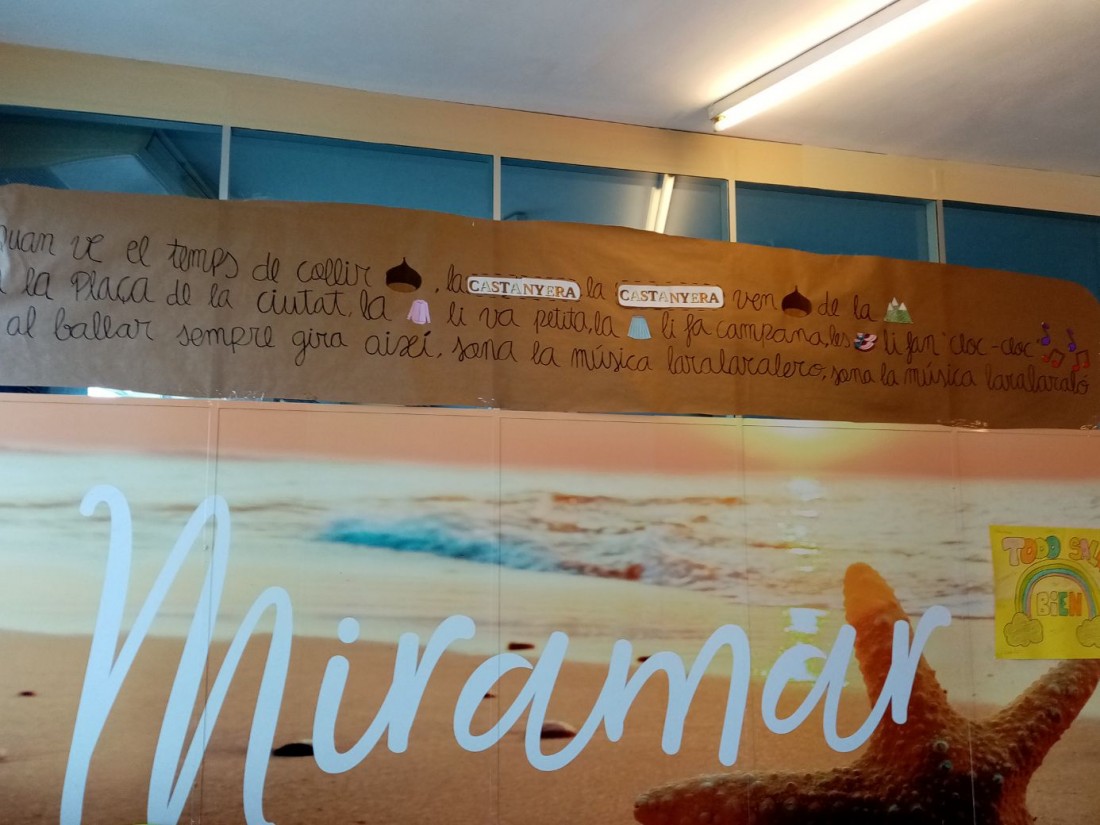 uan ve el temps de collir , la CASTANYERA la CASTANYERA ven de la
la plaça de la ciutat. la li va petita, la li fa campana, les li fan "cloc-cloc"
al ballar sempre gira així, sona la música laralaralero, sona la música laralaraló
Miramar
TODO SAL
BIEN